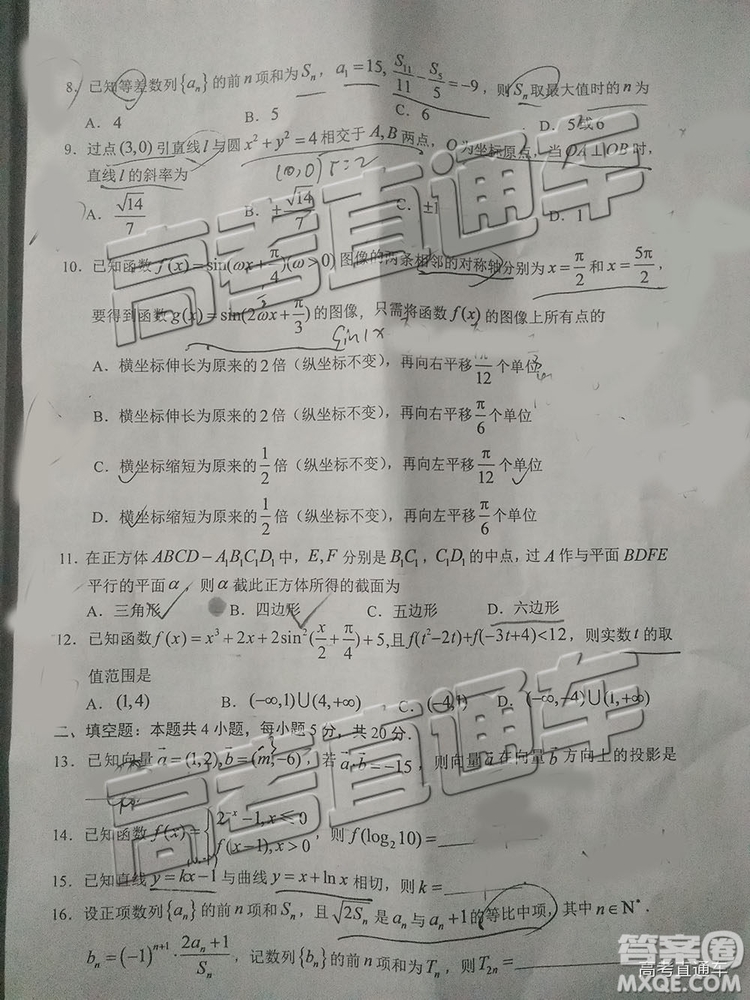 8. 已知等差数列{aₙ}的前n项和为Sₙ，a₁=15, S₁₁/11 - S₅/5 = -9，则Sₙ取最大值时的n为
A. 4 B. 5 C. 6 D. 5或6
9. 过点(3,0)引直线l与圆x²+y²=4相交于A,B两点，O为坐标原点，当OA⊥OB时，
(0,0) r=2
直线l的斜率为
A. √14/7 B. ±√14/7 C. ±1 D. 1
10. 已知函数f(x)=sin(ωx+π/4)(ω>0)图像的两条相邻的对称轴分别为x=π/2和x=5π/2，
要得到函数g(x)=sin(2ωx+π/3)的图像，只需将函数f(x)的图像上所有点的
A. 横坐标伸长为原来的2倍（纵坐标不变），再向右平移π/12个单位
B. 横坐标伸长为原来的2倍（纵坐标不变），再向右平移π/6个单位
C. 横坐标缩短为原来的1/2倍（纵坐标不变），再向左平移π/12个单位
D. 横坐标缩短为原来的1/2倍（纵坐标不变），再向左平移π/6个单位
11. 在正方体ABCD-A₁B₁C₁D₁中，E,F分别是B₁C₁，C₁D₁的中点，过A作与平面BDFE
平行的平面α，则α截此正方体所得的截面为
A. 三角形 B. 四边形 C. 五边形 D. 六边形
12. 已知函数f(x)=x³+2x+2sin²(x/2+π/4)+5,且f(t²-2t)+f(-3t+4)<12，则实数t的取
值范围是
A. (1,4) B. (-∞,1)∪(4,+∞) C. (-4,1) D. (-∞,-4)∪(1,+∞)
二、填空题：本题共4小题，每小题5分，共20分.
13. 已知向量a=(1,2),b=(m,-6)，若a·b=-15，则向量a在向量b方向上的投影是
14. 已知函数f(x)={2⁻ˣ-1,x≤0 f(x-1),x>0，则f(log₂10)=
15. 已知直线y=kx-1与曲线y=x+lnx相切，则k=
16. 设正项数列{aₙ}的前n项和Sₙ，且√2Sₙ是aₙ与aₙ+1的等比中项，其中n∈N*.
bₙ=(-1)ⁿ⁺¹·(2aₙ+1)/Sₙ，记数列{bₙ}的前n项和为Tₙ，则T₂ₙ=
高考直通车
高考直通车
答案圈
高考直通车
MXQE.COM